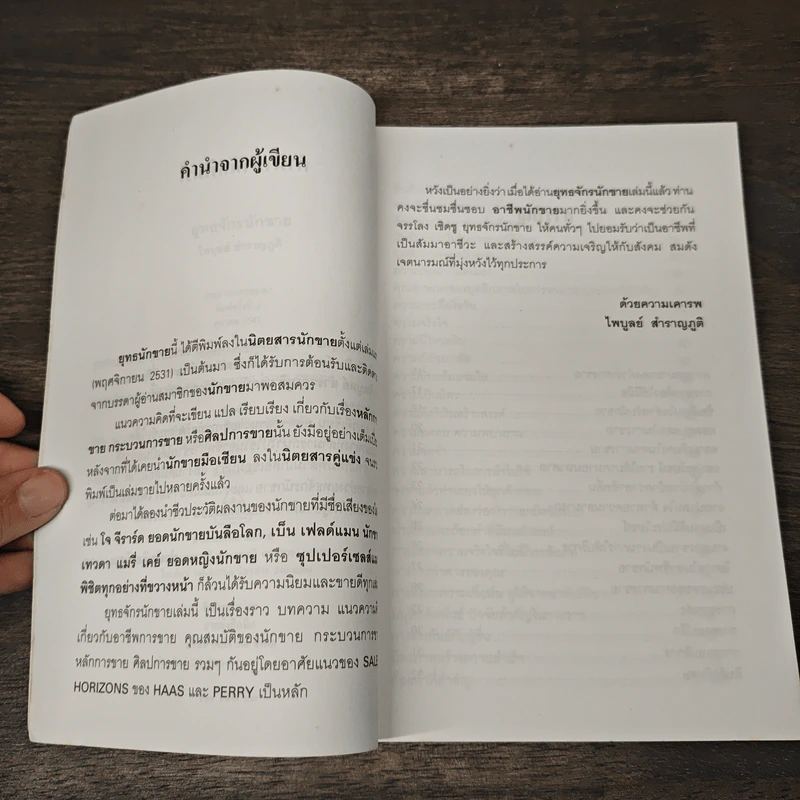 คำนำจากผู้เขียน
ยุทธนักขายนี้ ได้ตีพิมพ์ลงในนิตยสารนักขายตั้งแต่เล่ม
(พฤศจิกายน 2531) เป็นต้นมา ซึ่งก็ได้รับการต้อนรับและติดตา
จากบรรดาผู้อ่านสมาชิกของนักขายมาพอสมควร
แนวความคิดที่จะเขียน แปล เรียบเรียง เกี่ยวกับเรื่องหลักกา
ขาย กระบวนการขาย หรือศิลปการขายนั้น ยังมีอยู่อย่างเต็มเปี่
หลังจากที่ได้เคยนำนักขายมือเซียน ลงในนิตยสารคู่แข่ง จน
พิมพ์เป็นเล่มขายไปหลายครั้งแล้ว
ต่อมาได้ลองนำชีวประวัติผลงานของนักขายที่มีชื่อเสียงของ
เช่น โจ จีราร์ด ยอดนักขายบันลือโลก, เบ็น เฟลด์แมน นักขา
เทวดา แมรี่ เคย์ ยอดหญิงนักขาย หรือ ซุปเปอร์เซลส์แ
พิชิตทุกอย่างที่ขวางหน้า ก็ล้วนได้รับความนิยมและขายดีทุก
ยุทธจักรนักขายเล่มนี้ เป็นเรื่องราว บทความ แนวความ
เกี่ยวกับอาชีพการขาย คุณสมบัติของนักขาย กระบวนการขา
หลักการขาย ศิลปการขาย รวมๆ กันอยู่โดยอาศัยแนวของ SALE
HORIZONS ของ HAAS และ PERRY เป็นหลัก
หวังเป็นอย่างยิ่งว่า เมื่อได้อ่านยุทธจักรนักขายเล่มนี้แล้ว ท่าน
คงจะชื่นชมชื่นชอบ อาชีพนักขายมากยิ่งขึ้น และคงจะช่วยกัน
จรรโลง เชิดชู ยุทธจักรนักขาย ให้คนทั่วๆ ไปยอมรับว่าเป็นอาชีพที่
เป็นสัมมาอาชีวะ และสร้างสรรค์ความเจริญให้กับสังคม สมดัง
เจตนารมณ์ที่มุ่งหวังไว้ทุกประการ
ด้วยความเคารพ
ไพบูลย์ สำราญภูติ